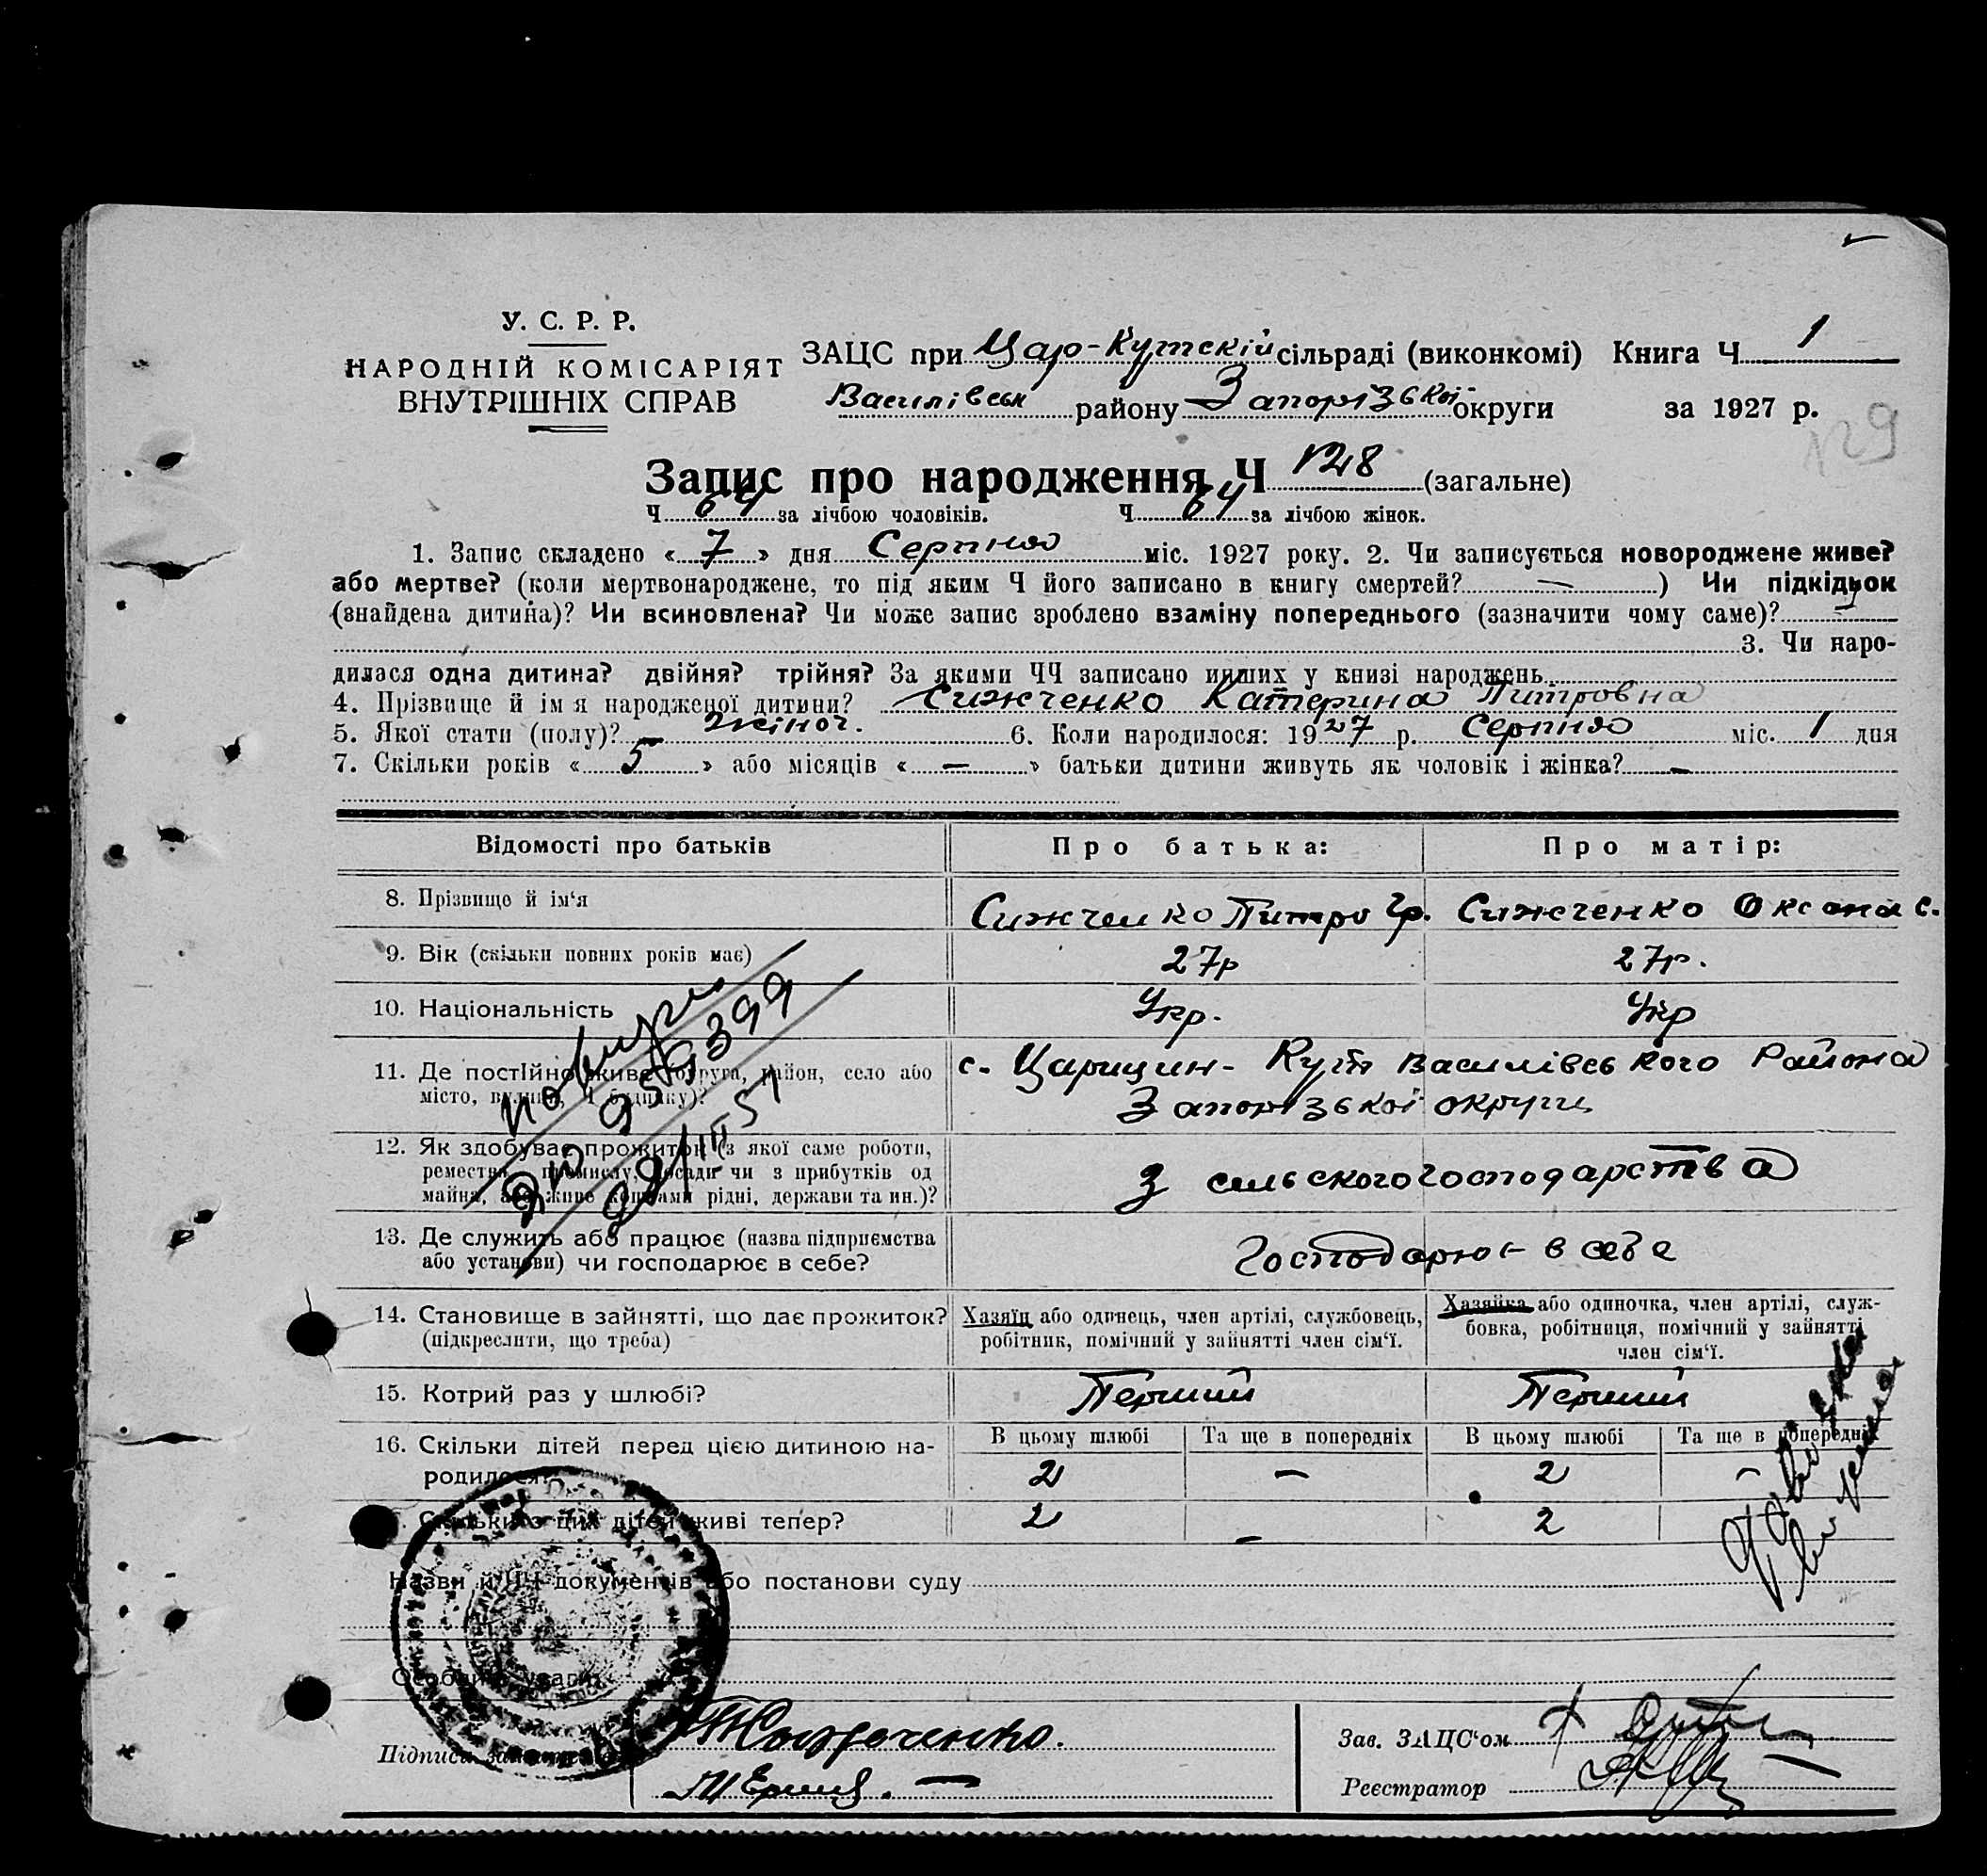 У. С. Р. Р.
НАРОДНІЙ КОМІСАРІЯТ
ВНУТРІШНІХ СПРАВ
ЗАЦС при Царо-Кутскій сільраді (виконкомі) Книга Ч 1
Василівськ району Запорізької округи за 1927 р.
129
Запис про народження Ч 128 (загальне)
Ч 64 за лічбою чоловіків. Ч 64 за лічбою жінок.
1. Запис складено « 7 » дня Серпня міс. 1927 року. 2. Чи записується новороджене живе?
або мертве? (коли мертвонароджене, то під яким Ч його записано в книгу смертей? — ) Чи підкідьок
(знайдена дитина)? Чи всиновлена? Чи може запис зроблено взаміну попереднього (зазначити чому саме)?
3. Чи наро-
дилася одна дитина? двійня? трійня? За якими ЧЧ записано инших у книзі народжень
4. Прізвище й ім'я народженої дитини? Сижченко Катерина Питровна
5. Якої стати (полу)? жіноч. 6. Коли народилося: 1927 р. Серпня міс. 1 дня
7. Скільки років « 5 » або місяців « — » батьки дитини живуть як чоловік і жінка? —
Відомості про батьків Про батька: Про матір:
8. Прізвище й ім'я Сижченко Питро Гр. Сижченко Оксана С.
9. Вік (скільки повних років має) 27р 27р.
10. Національність Укр. Укр
11. Де постійно живе (округа, район, село або с. Царицин-Кут Василівського Района
місто, вулиця, Ч будинку)? Запорізької округи
12. Як здобуває прожиток (з якої саме роботи,
ремества, промислу, посади чи з прибутків од
майна, або живе коштами рідні, держави та ин.)? З сельского господарства
13. Де служить або працює (назва підприємства
або установи) чи господарює в себе? Господарює в себе
14. Становище в зайнятті, що дає прожиток? Хазяїн або одинець, член артілі, службовець, Хазяйка або одиночка, член артілі, служ-
(підкреслити, що треба) робітник, помічний у зайнятті член сім'ї. бовка, робітниця, помічний у зайнятті
член сім'ї.
15. Котрий раз у шлюбі? Перший Перший
16. Скільки дітей перед цією дитиною на- В цьому шлюбі Та ще в попередніх В цьому шлюбі Та ще в попередніх
родилося? 2 — 2 —
Скільки з цих дітей живі тепер? 2 — 2
Назви й ЧЧ документів або постанови суду
Особливі уваги
Підписи
Зав. ЗАЦС'ом
Реєстратор